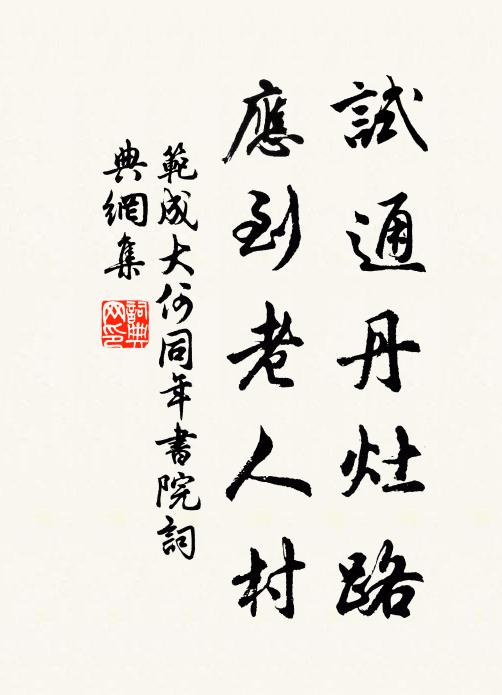 試通丹灶路
應到老人村
範成大何同年書院詞
典網集
詞典网印